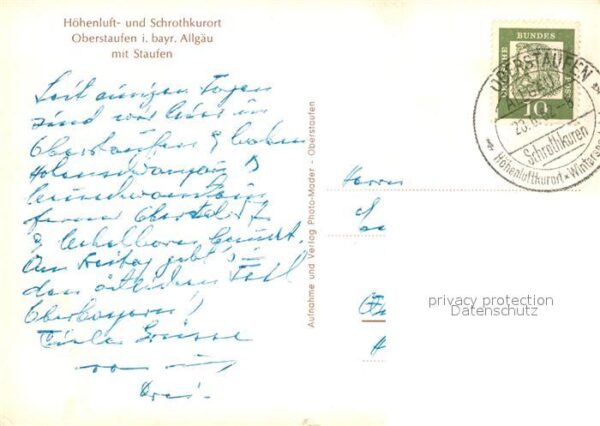 Höhenluft- und Schrothkurort
Oberstaufen i. bayr. Allgäu
mit Staufen
Seit einigen Tagen
sind wir hier in
Oberstaufen & haben
Hohenschwangau &
Neuschwanstein
ferner Oberstdorf
& besucht.
Am Freitag geht's in
den östlichen Teil
Oberbayern!
Viele Grüsse
von uns
Drei.
Aufnahme und Verlag Photo-Mader - Oberstaufen
Herrn
DEUTSCHE BUNDESPOST
10
OBERSTAUFEN
ALLGÄU
23.
Schrothkuren
Höhenluftkurort × Wintersp
privacy protection
Datenschutz